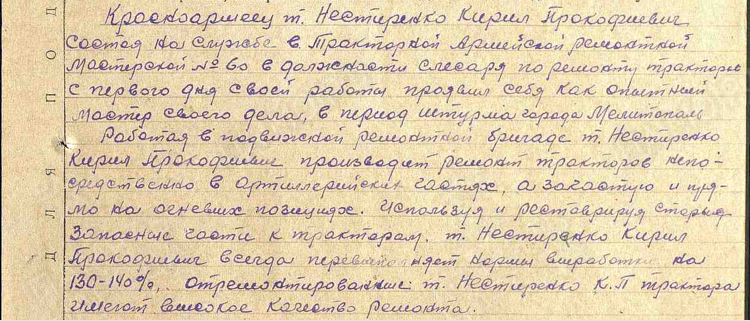 Красноармеец т. Нестиренко Кирил Прокофиевич
состоя на службе в Тракторной Армейской ремонтной
мастерской № 60 в должности слесаря по ремонту тракторов
с первого дня своей работы проявил себя как опытный
мастер своего дела, в период штурма города Мелитополь
Работая в подвижной ремонтной бригаде т. Нестиренко
Кирил Прокофиевич производит ремонт тракторов непо-
средственно в артиллерийских частях, а зачастую и пря-
мо на огневых позициях. Используя и реставрируя старые
запасные части к тракторам. т. Нестиренко Кирил
Прокофиевич всегда перевыполняет нормы выработки на
130-140%, отремонтированные т. Нестиренко К.П трактора
имеют высокое качество ремонта.
ДЛЯ ПОД